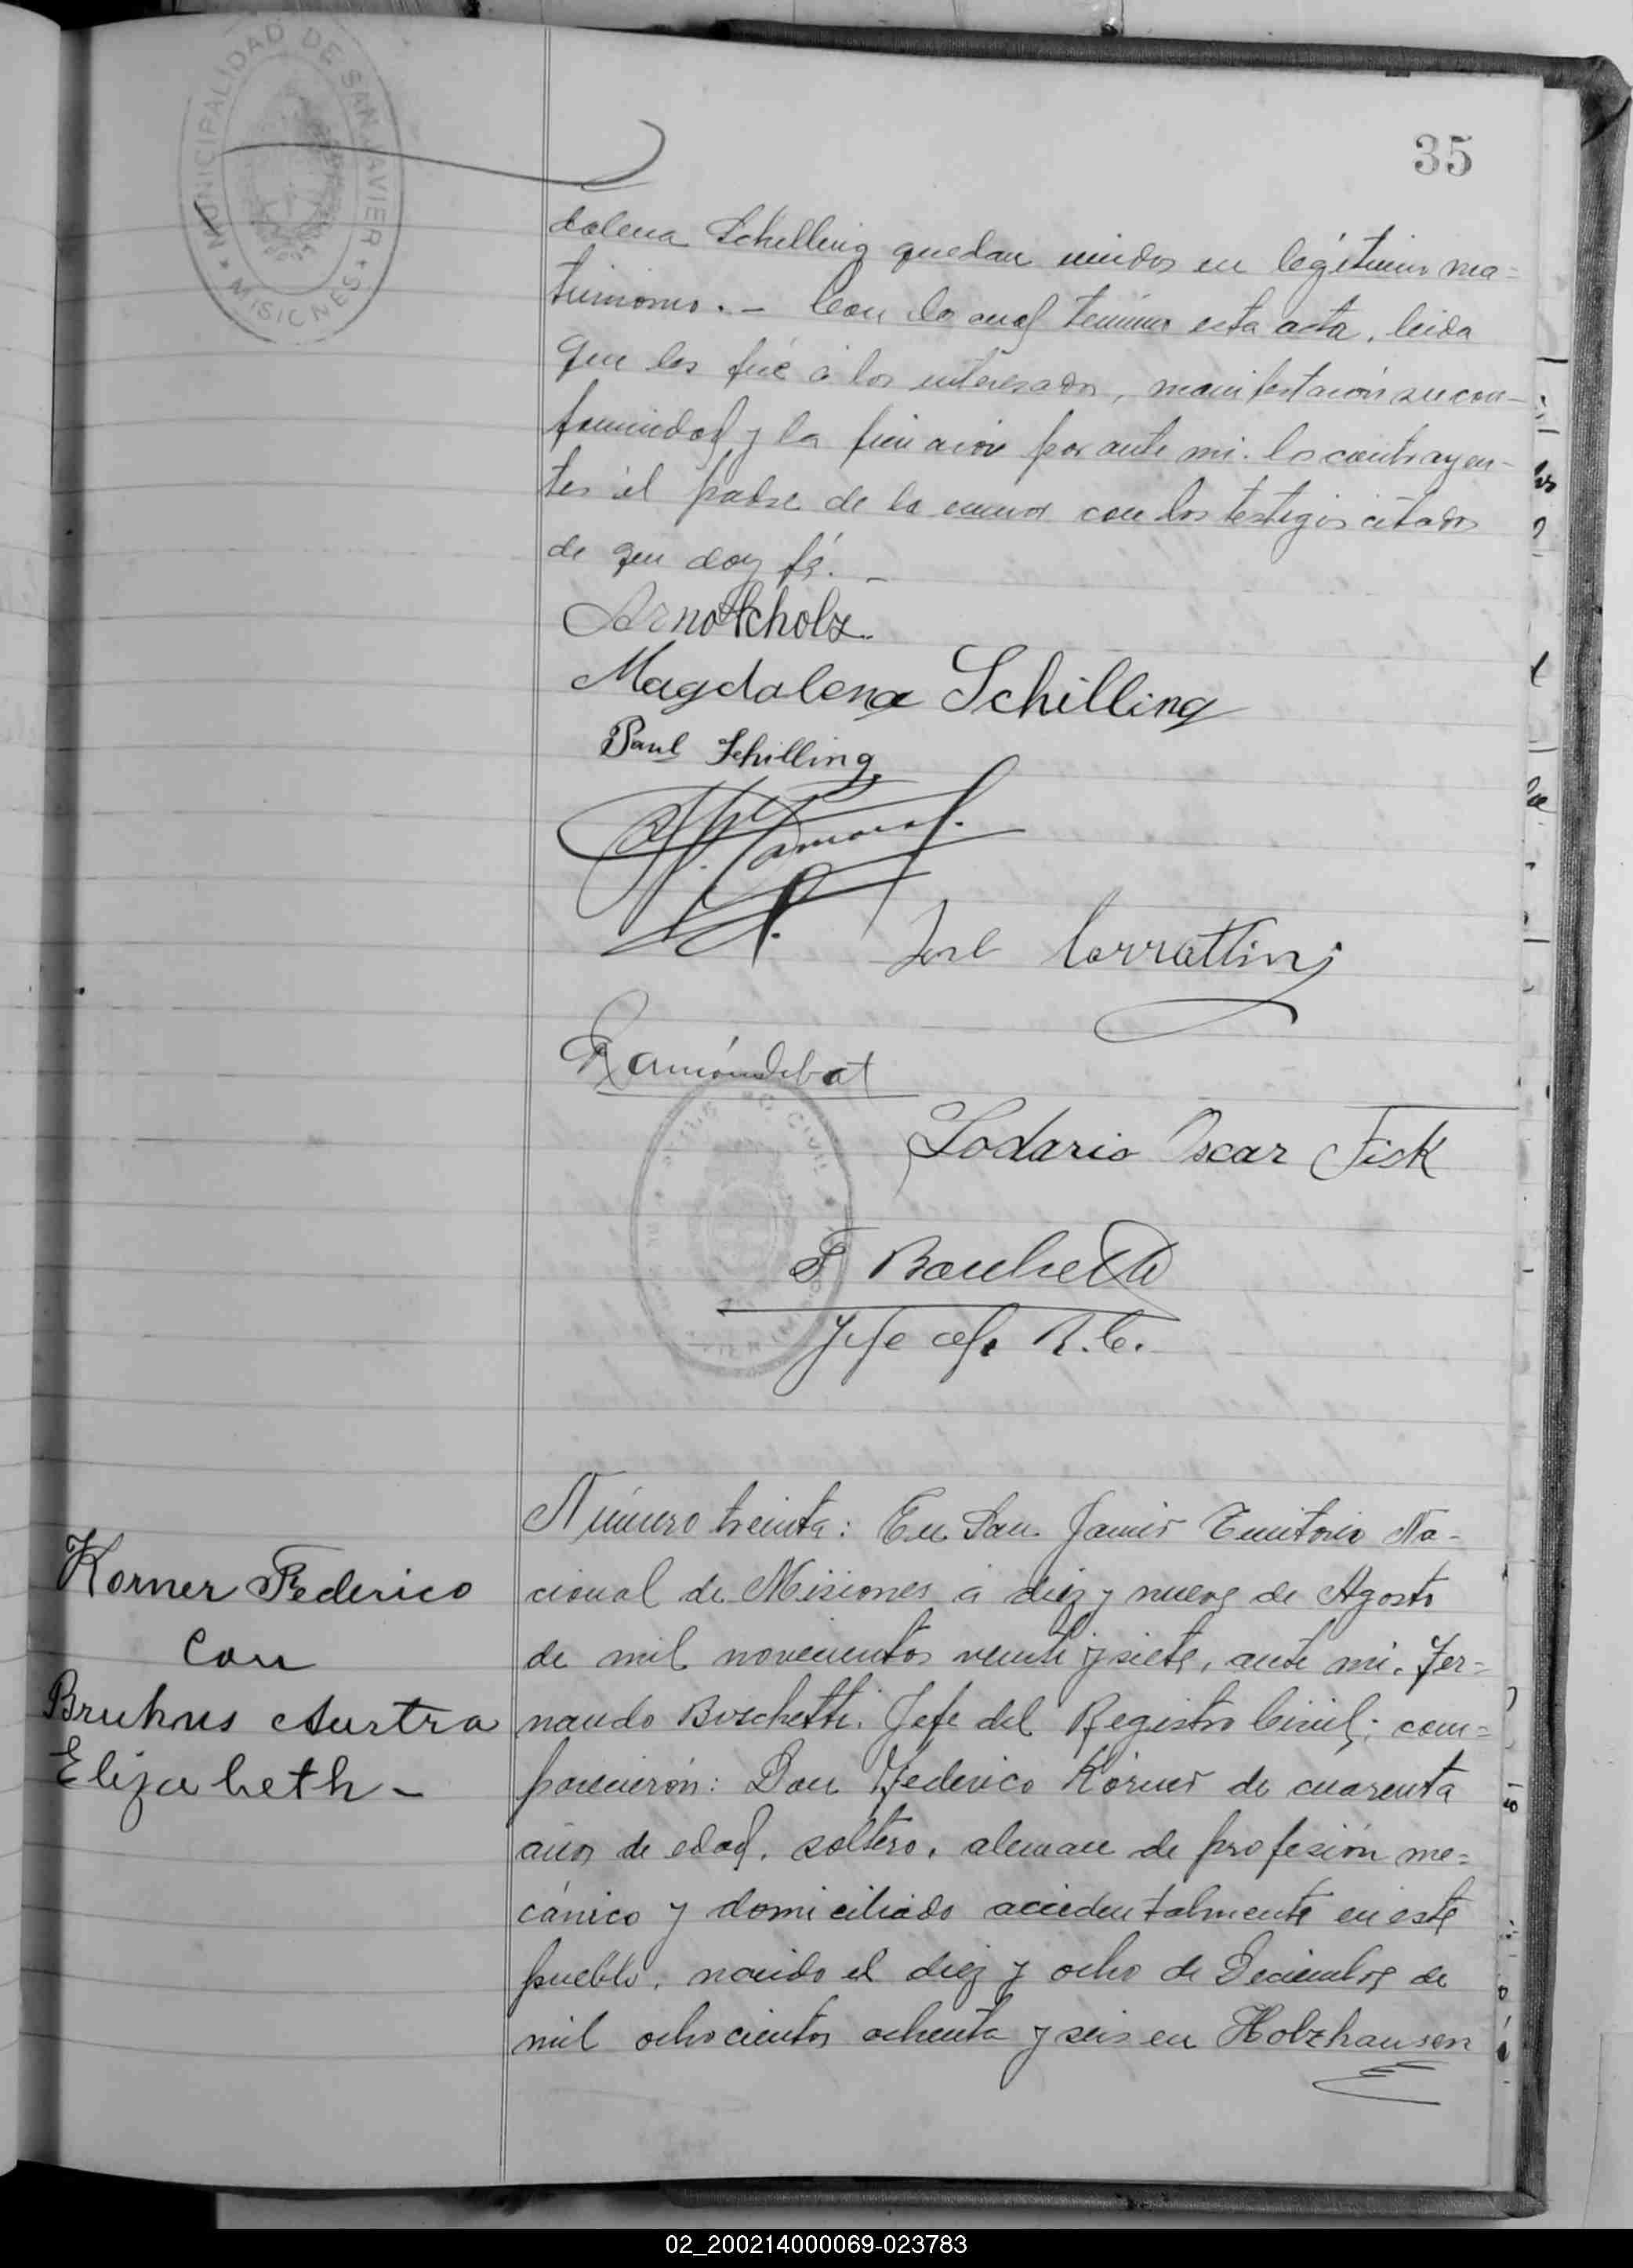 MUNICIPALIDAD DE SAN JAVIER
MISIONES
35
dalena Schilling quedan unidos en legítimo ma=
trimonio. – Con lo cual terminó esta acta, leida
que les fué á los interesados, manifestarón su con–
formidad y la firmaron por ante mi. los contrayen–
tes el padre de la menor con los testigos citados
de que doy fé. –
Arno Scholz
Magdalena Schilling
Paul Schilling
José Corrattini
Ramón Debat
Lodario Oscar Fisk
F Boschetti
Jefe del R.C.
Número treinta: En San Javier Territorio Na-
cional de Misiones á diez y nueve de Agosto
de mil novecientos veinte y siete, ante mi. Fer=
nando Boschetti. Jefe del Registro Civil; com=
parecierón: Don Federico Körner de cuarenta
años de edad. soltero. aleman de profesión me=
cánico y domiciliado accidentalmente en este
pueblo, nacido el diez y ocho de Deciembre de
mil ochocientos ochenta y seis en Holzhausen
Korner Federico
con
Bruhns Austra
Elizabeth –
02_200214000069-023783